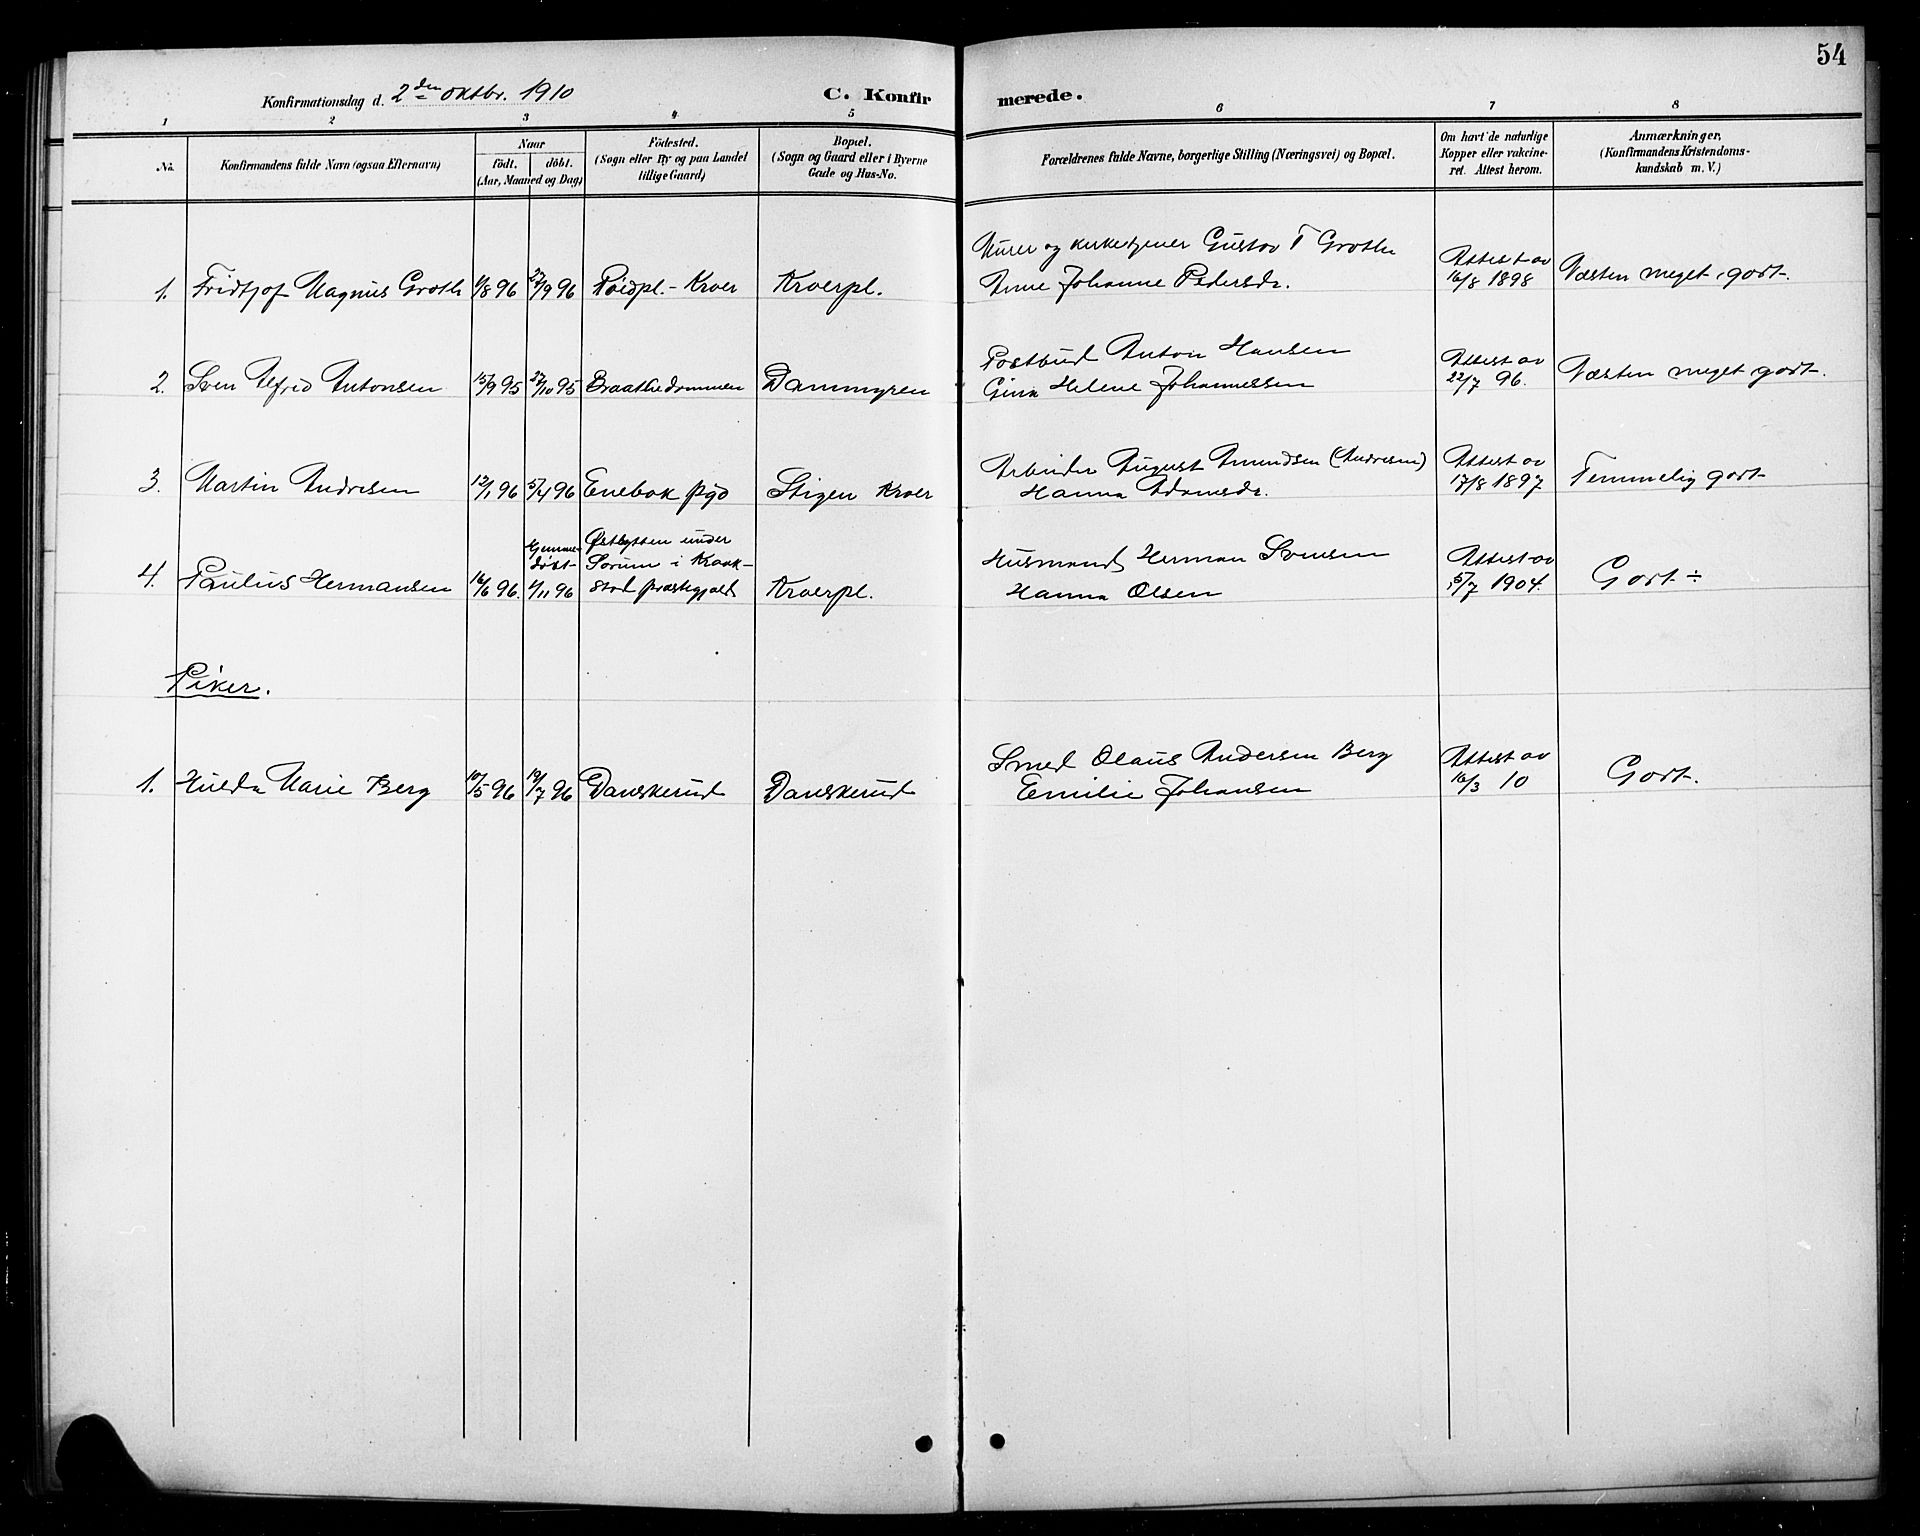 54
Konfirmationsdag d. 2den oktbr. 1910
C. Konfirmerede.
1 2 3 4 5 6 7 8
No.
Konfirmandens fulde Navn (ogsaa Efternavn)
Naar
födt. döbt.
(Aar, Maaned og Dag)
Födested.
(Sogn eller By og paa Landet
tillige Gaard)
Bopæl.
(Sogn og Gaard eller i Byerne
Gade og Hus-No.
Forældrenes fulde Navne, borgerlige Stilling (Næringsvei) og Bopæl.
Om havt de naturlige
Kopper eller vakcine-
ret. Attest herom.
Anmærkninger,
(Konfirmandens Kristendoms-
kundskab m. V.)
Murer og kirketjener Gustav T Groth
Attest av
1. Fridtjof Magnus Groth 1/8 96 27/9 96 Kroer Kroerpl. Anne Johanne Pedersdr. 16/8 1898 Næsten meget godt.
Postbud Anton Hansen
Attest av
2. Sven Alfred Antonsen 15/9 95 27/10 95 Braathedammen Dammyren Gina Helene Johannessen 22/7 96. Næsten meget godt.
Arbeider August Amundsen (Andresen)
Attest av
3. Martin Andresen 12/1 96 5/4 96 Enebak pgd Stigen Kroer Hanna Adamsdr. 17/8 1897 Temmelig godt
Hjemme-
døbt
Østbytten under
Sørum i Kraak-
Husmand Herman Svensen
Attest av
4. Paulius Hermansen 16/6 96. 1/11 96 stad præstegjæld Kroerpl. Hanna Olsen 5/7 1904. Godt ÷
Piker.
Smed Olaus Andersen Berg
Attest av
1. Hulda Marie Berg 10/5 96 19/7 96 Danskerud Danskerud Emilie Johansen 16/3 10 Godt.